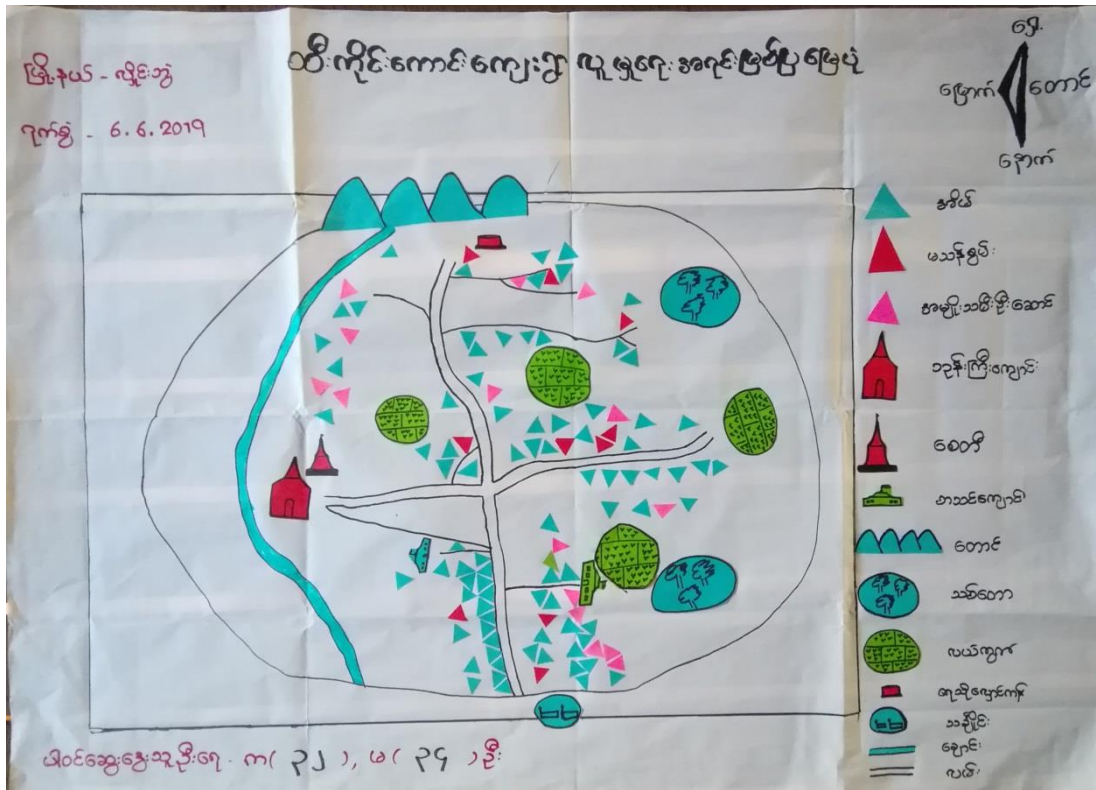 ထီးကိုင်းကောင်းကျေးရွာ လူမှုရေးအရင်းမြစ်ပြမြေပုံ
မြို့နယ် - လှိုင်းဘွဲ
ရက်စွဲ - 6.6.2019
ရှေ့
မြောက်
တောင်
နောက်
အိမ်
မသန်စွမ်း
အမျိုးသမီးဦးဆောင်
ဘုန်းကြီးကျောင်း
စေတီ
စာသင်ကျောင်း
တောင်
သစ်တော
လယ်ကွက်
ရေသိုလှောင်ကန်
သင်္ချိုင်း
ချောင်း
လမ်း
ပါဝင်ဆွေးနွေးသူဦးရေ - က( ၃၂ ), မ( ၃၄ )ဦး